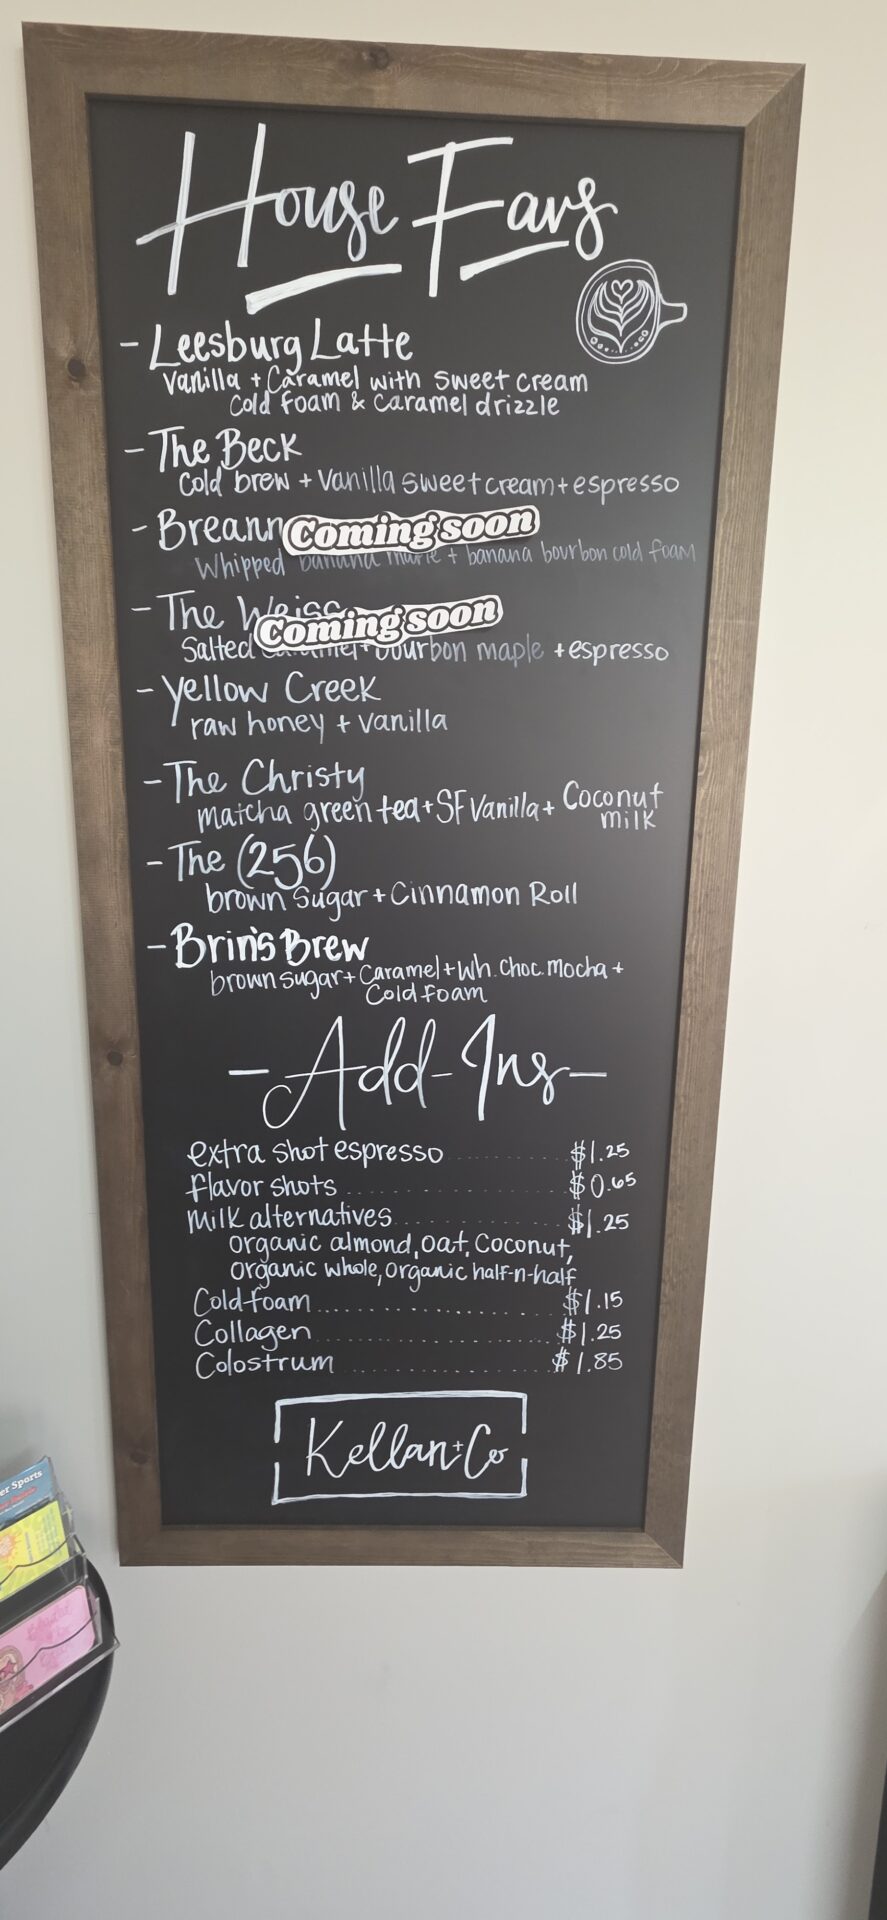 House Favs
- Leesburg Latte
Vanilla + Caramel with sweet cream
cold foam & caramel drizzle
- The Beck
cold brew + vanilla sweet cream + espresso
- Breann
Coming soon
Whipped banana + banana bourbon cold foam
- The Weiss
Coming soon
Salted caramel + bourbon maple + espresso
- Yellow Creek
raw honey + vanilla
- The Christy
matcha green tea + SF Vanilla + Coconut
milk
- The (256)
brown sugar + Cinnamon Roll
- Brin's Brew
brown sugar + Caramel + Wh. Choc. Mocha +
Cold foam
- Add-Ins -
extra shot espresso $1.25
flavor shots $0.65
milk alternatives $1.25
organic almond, oat, coconut,
organic whole, organic half-n-half
Cold foam $1.15
Collagen $1.25
Colostrum $1.85
Kellan + Co
er Sports